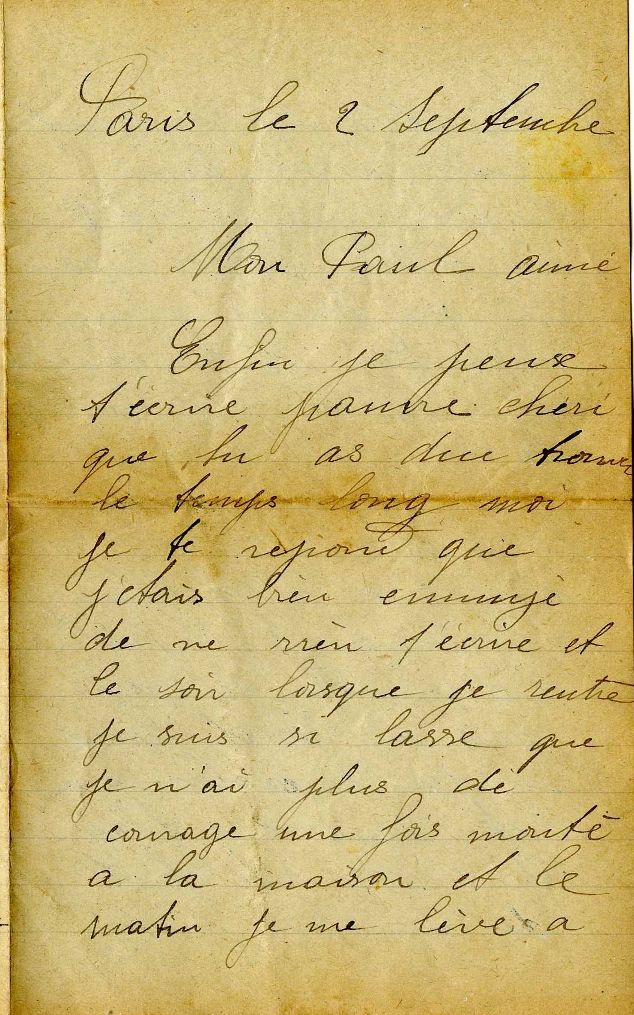 Paris le 2 Septembre
Mon Paul aimé
Enfin je peuse
t'écrire pauvre chéri
que tu as due trouver
le temps long moi
je te repond que
j'etais bien ennuyé
de ne rrèn t'écrire et
le soir lorsque je rentre
je suis si lasse que
je n'ai plus de
courage une fois monté
a la maison et le
matin je me lève a